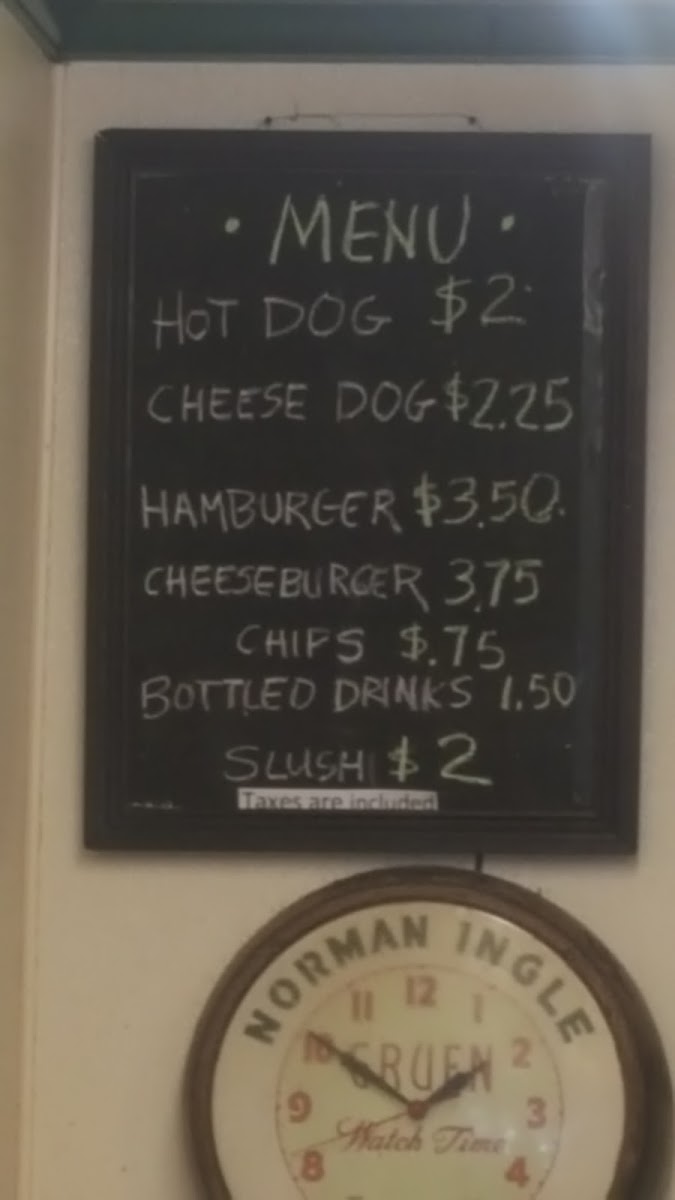 • MENU •
HOT DOG $2
CHEESE DOG $2.25
HAMBURGER $3.50
CHEESEBURGER 3.75
CHIPS $.75
BOTTLED DRINKS 1.50
SLUSH $2
Taxes are included
NORMAN INGLE
11 12 1
10 GRUEN 2
9 3
Watch Time
8 4